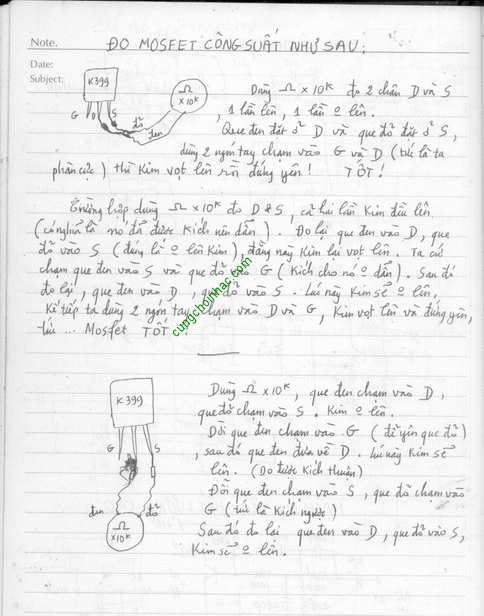 Note. ĐO MOSFET CÔNG SUẤT NHƯ SAU:
Date:
Subject:
K399
G D S
Ω
x10K
đỏ
đen
Dùng Ω x10K đo 2 chân D và S
, 1 lần lên, 1 lần o lên.
Que đen đặt ở D và que đỏ đặt ở S,
dùng 2 ngón tay chạm vào G và D (tức là ta
phân cực) thì Kim vọt lên rồi đứng yên! TỐT!
Trường hợp dùng Ω x10K đo D & S, cả hai lần Kim đều lên
(có nghĩa là nó đã được Kích nên dẫn). Đo lại que đen vào D, que
đỏ vào S (đúng là o lên Kim), đằng này Kim lại vọt lên. Ta cứ
chạm que đen vào S và que đỏ vào G (Kích cho nó o dẫn). Sau đó
đo lại, que đen vào D, que đỏ vào S. Lúc này Kim sẽ o lên.
Kế tiếp ta dùng 2 ngón tay chạm vào D và G, Kim vọt lên và đứng yên,
tức ... Mosfet TỐT
cungchoinhac.com
K399
G S
đen
đỏ
Ω
x10K
Dùng Ω x10K, que đen chạm vào D,
que đỏ chạm vào S. Kim o lên.
Dời que đen chạm vào G (để yên que đỏ)
, sau đó que đen đưa về D. Lúc này Kim sẽ
lên. (Do được Kích thuận)
Đổi que đen chạm vào S, que đỏ chạm vào
G (tức là Kích ngược)
Sau đó đo lại que đen vào D, que đỏ vào S,
Kim sẽ o lên.